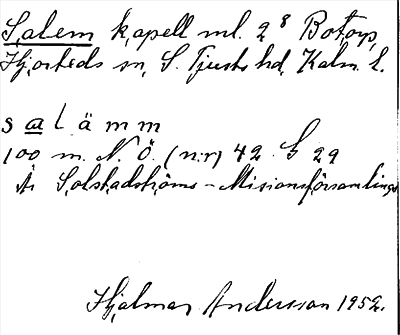 Salem kapell ml. 2⁸ Botorp,
Hjorteds sn, S. Tjusts hd, Kalm. l.
s a l ä m m
100 m. N. Ö. (n:r) 42 G 29
Är Solstadströms-Misionsförsamlings
Hjalmar Andersson 1952.